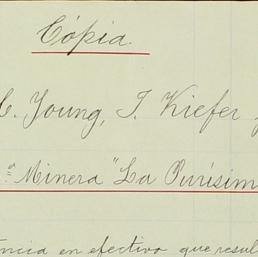 Cópia
C. Young, T. Kiefer y
"Minera "La Purísim
ncia en efectivo que resul